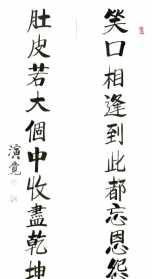 笑口相逢到此都忘恩怨
肚皮若大個中收盡乾坤
演覺